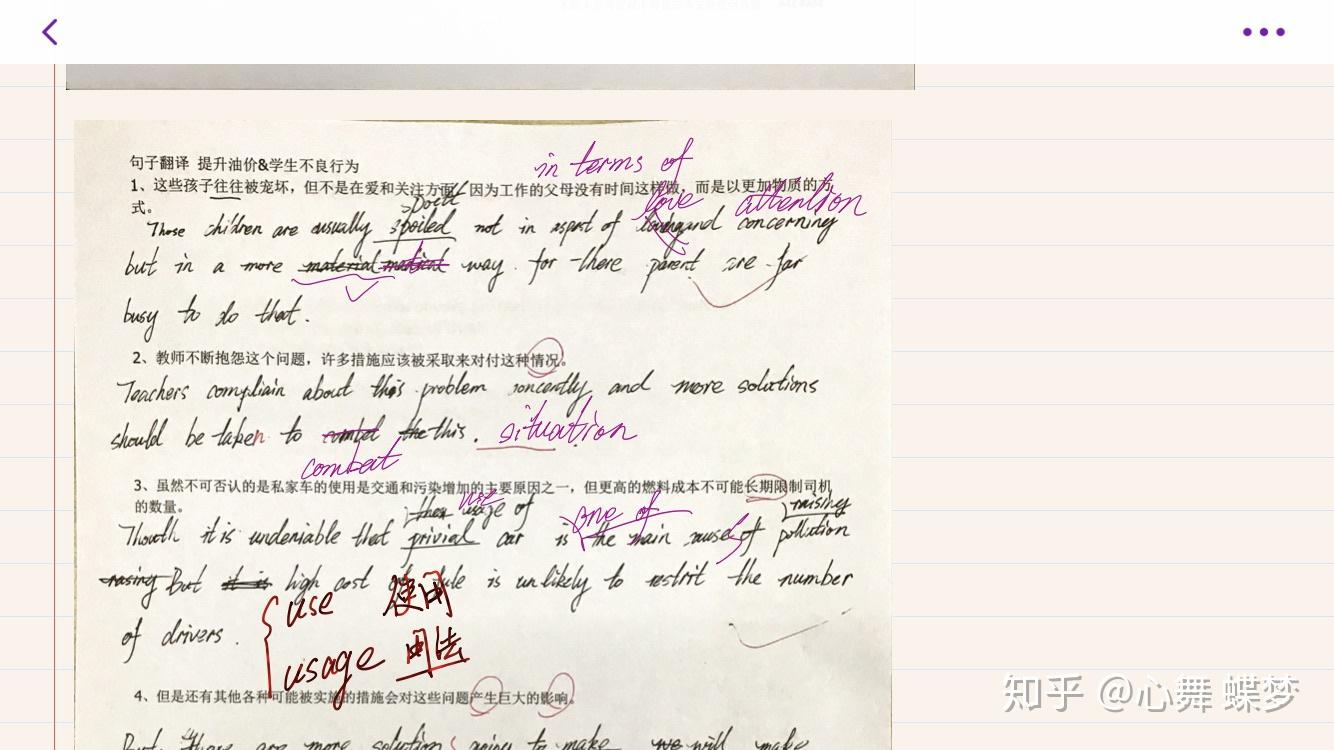 句子翻译 提升油价&学生不良行为
in terms of
1、这些孩子往往被宠坏，但不是在爱和关注方面，因为工作的父母没有时间这样做，而是以更加物质的方
式。
love attention
Those children are usually spoiled not in aspect of and concerning
but in a more material way for there parent are far
busy to do that.
2、教师不断抱怨这个问题，许多措施应该被采取来对付这种情况。
Teachers compliain about this problem and more solutions
should be taken to the this. situation
combat
3、虽然不可否认的是私家车的使用是交通和污染增加的主要原因之一，但更高的燃料成本不可能长期限制司机
的数量。
use
usage of one of raising
Thouth it is undeniable that privial car is the main cause of pollution
rasing But it is high cost is unlikely to restrit the number
of drivers.
use 使用
usage 用法
4、但是还有其他各种可能被实施的措施会对这些问题产生巨大的影响。
But there are more solution going to make we will make
知乎 @心舞 蝶梦